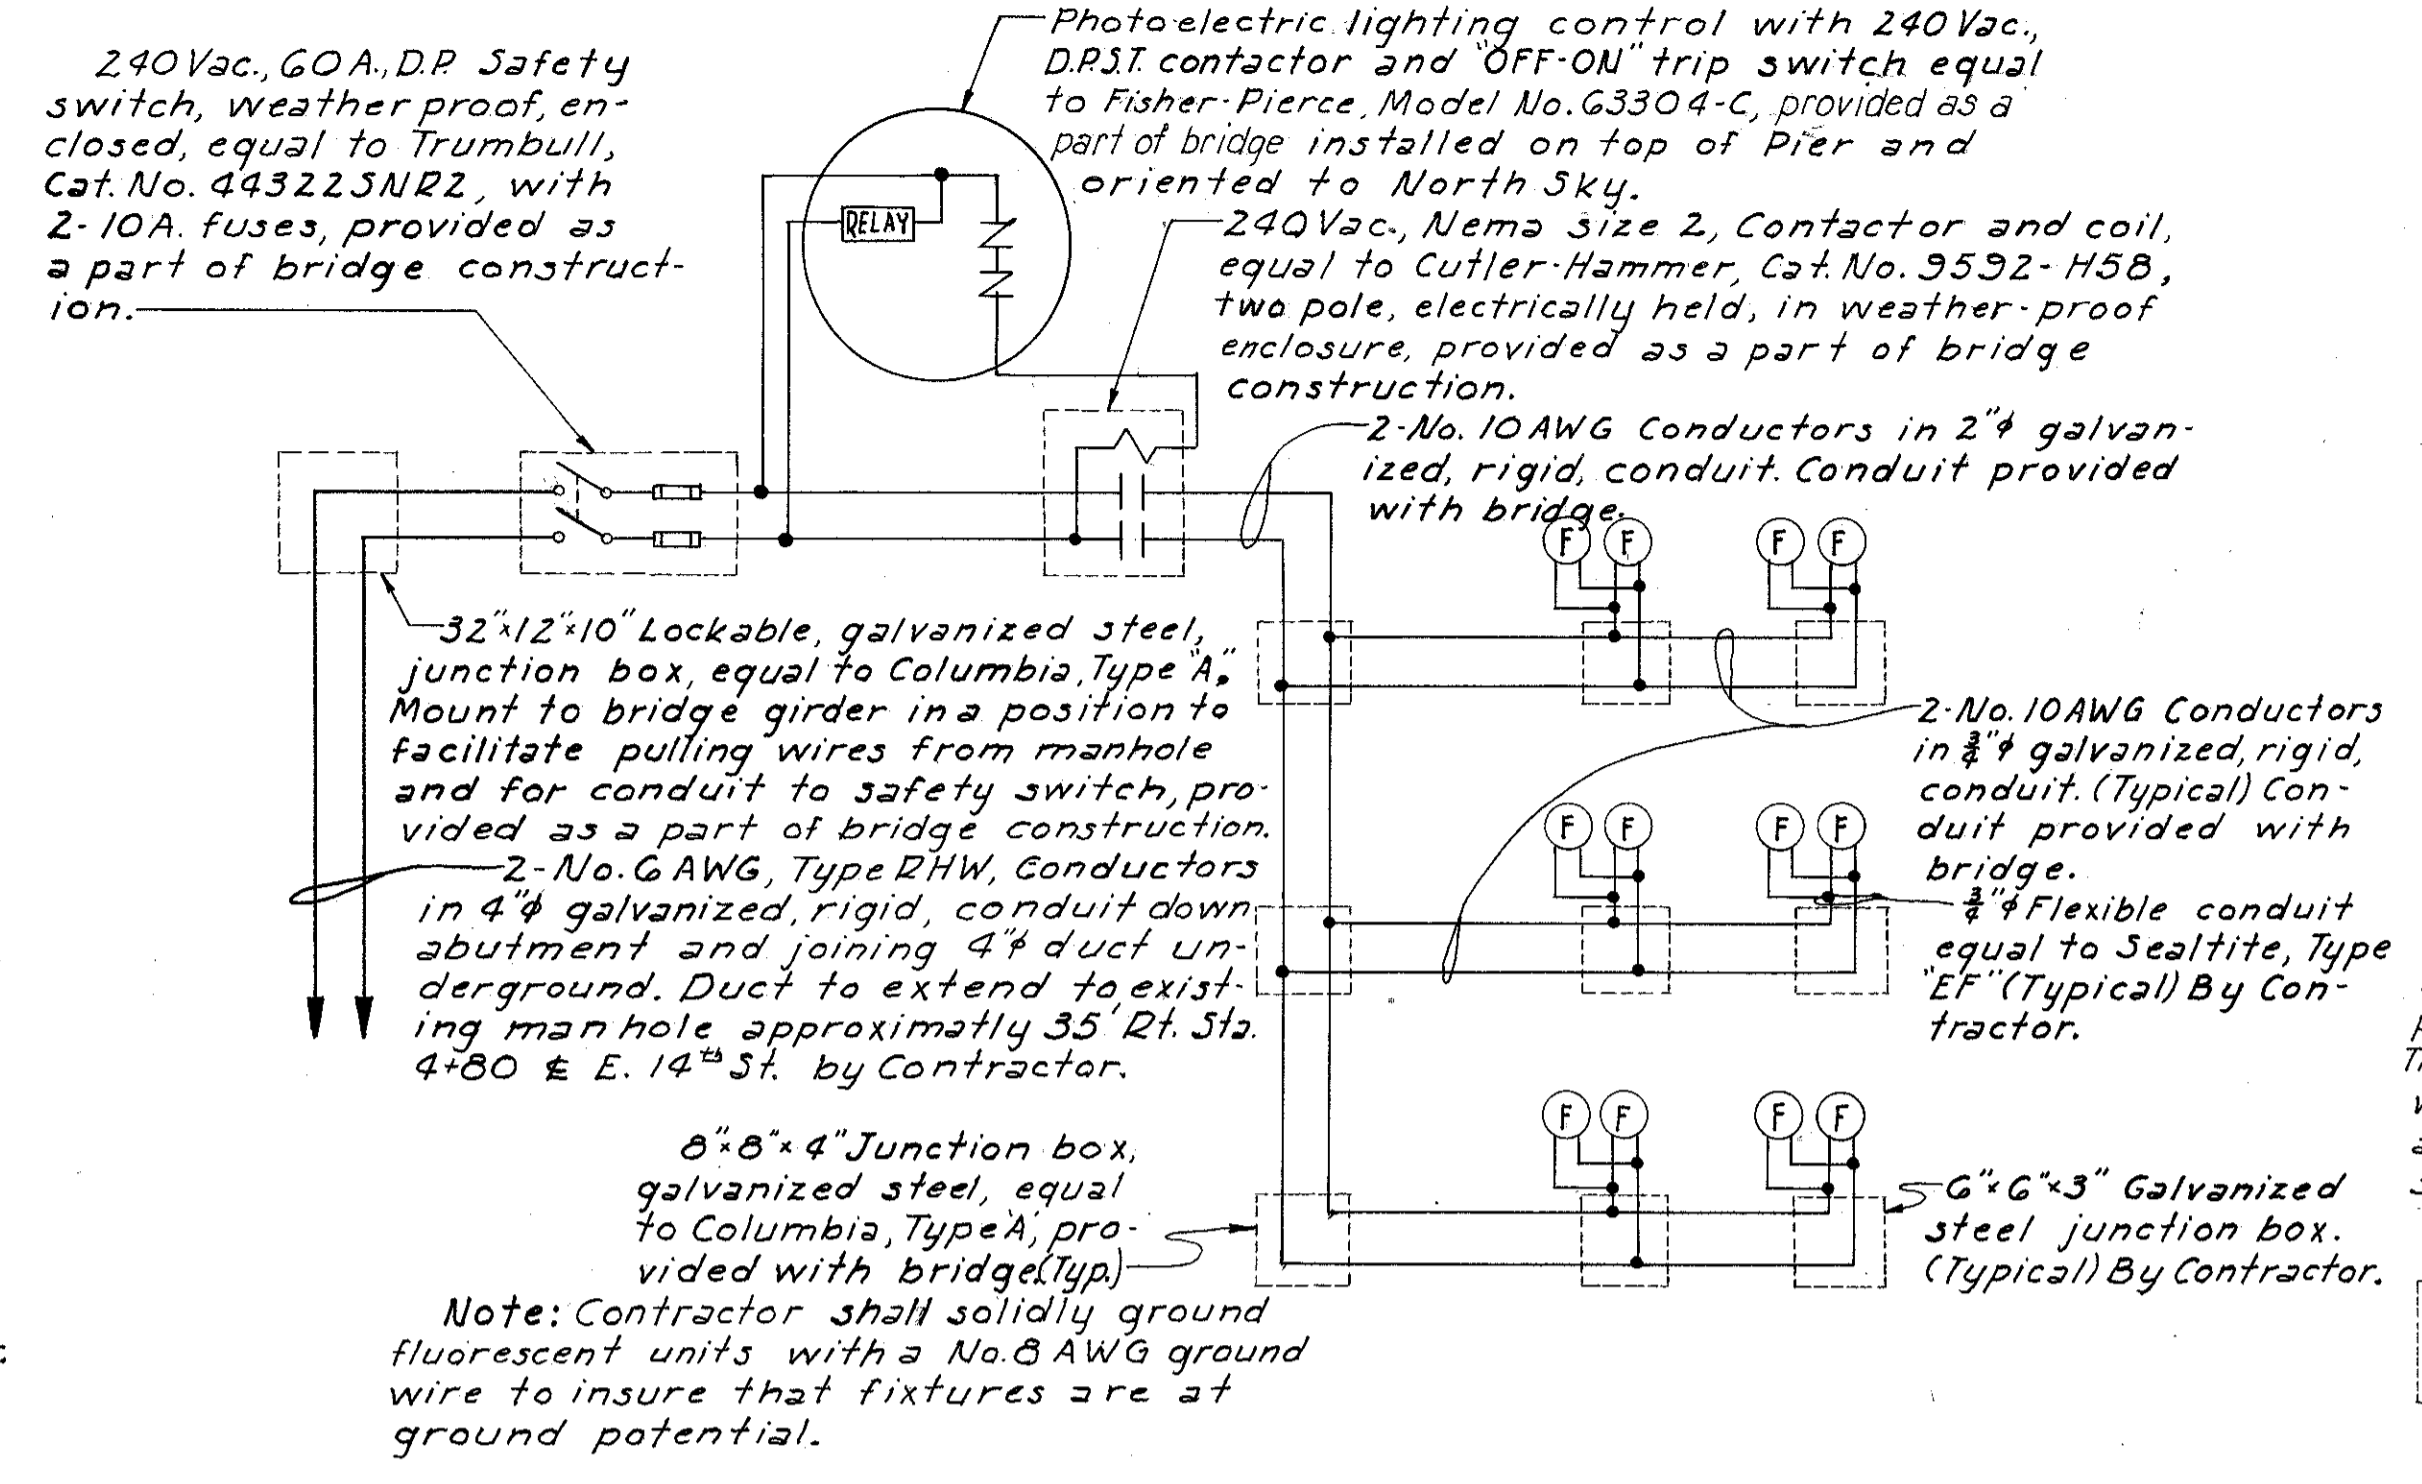 240Vac., 60A., D.P. Safety
switch, weatherproof, en-
closed, equal to Trumbull,
Cat. No. 44322SNR2, with
2-10A. fuses, provided as
a part of bridge construct-
ion.
Photoelectric lighting control with 240Vac.,
D.P.S.T. contactor and "OFF-ON" trip switch equal
to Fisher-Pierce, Model No. 63304-C, provided as a
part of bridge installed on top of Pier and
oriented to North Sky.
RELAY
240Vac., Nema size 2, Contactor and coil,
equal to Cutler-Hammer, Cat. No. 9592-H58,
two pole, electrically held, in weather-proof
enclosure, provided as a part of bridge
construction.
2-No. 10AWG Conductors in 2"ϕ galvan-
ized, rigid, conduit. Conduit provided
with bridge.
F F F F
32"x12"x10" Lockable, galvanized steel,
junction box, equal to Columbia, Type "A."
Mount to bridge girder in a position to
facilitate pulling wires from manhole
and for conduit to safety switch, pro-
vided as a part of bridge construction.
2-No. 10AWG Conductors
in ¾"ϕ galvanized, rigid,
conduit. (Typical) Con-
duit provided with
bridge.
F F F F
2-No. 6 AWG, Type RHW, Conductors
in 4"ϕ galvanized, rigid, conduit down
abutment and joining 4"ϕ duct un-
derground. Duct to extend to exist-
ing manhole approximatly 35' Rt. Sta.
4+80 ℄ E. 14th St. by Contractor.
¾"ϕ Flexible conduit
equal to Sealtite, Type
"EF" (Typical) By Con-
tractor.
F F F F
8"x8"x4" Junction box,
galvanized steel, equal
to Columbia, Type 'A', pro-
vided with bridge.(Typ.)
6"x6"x3" Galvanized
steel junction box.
(Typical) By Contractor.
Note: Contractor shall solidly ground
fluorescent units with a No. 8 AWG ground
wire to insure that fixtures are at
ground potential.